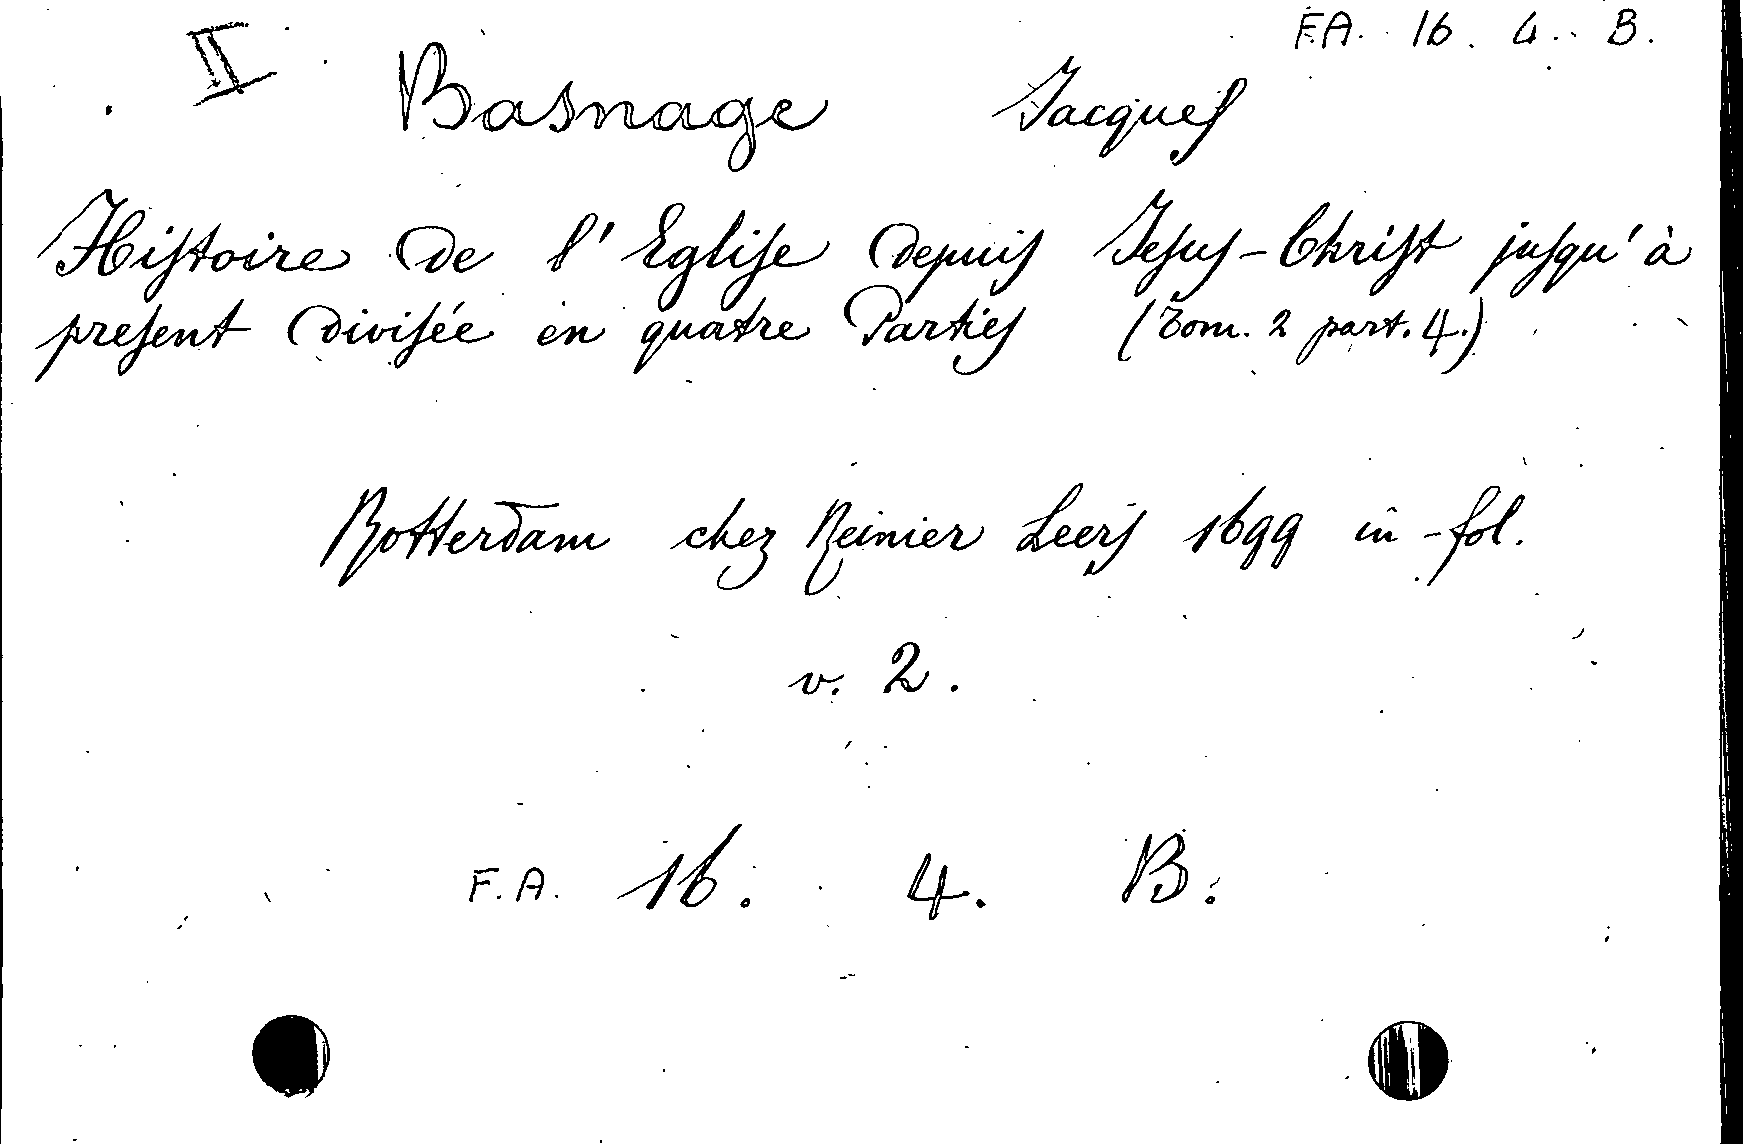 F.A. 16. 4. B.
II Basnage Jacques
Histoire de l'Eglise depuis Jesus-Christ jusqu'à
present divisée en quatre Parties (Tom. 2 part. 4.)
Rotterdam chez Reinier Leers 1699 in-fol.
v. 2.
F.A. 16. 4. B.